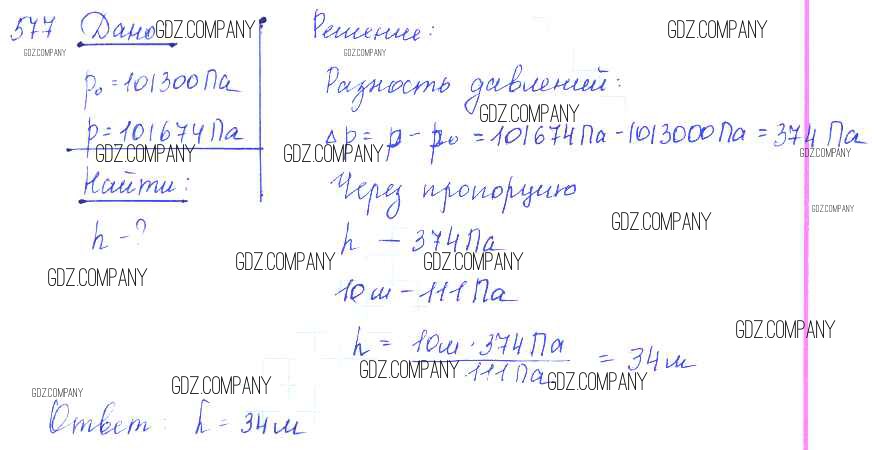 577 Дано GDZ.COMPANY
GDZ.COMPANY
p₀ = 101300 Па
p = 101674 Па
GDZ.COMPANY
Найти:
h - ?
GDZ.COMPANY
Решение: GDZ.COMPANY
GDZ.COMPANY
Разность давлений:
GDZ.COMPANY
Δp = p - p₀ = 101674 Па - 1013000 Па = 374 Па
GDZ.COMPANY GDZ.COMPANY
Через пропорцию
GDZ.COMPANY
GDZ.COMPANY
h — 374 Па
GDZ.COMPANY GDZ.COMPANY
10 м — 111 Па
GDZ.COMPANY
h = 10 м · 374 Па / 111 Па = 34 м
GDZ.COMPANY GDZ.COMPANY
GDZ.COMPANY GDZ.COMPANY
Ответ: h = 34 м